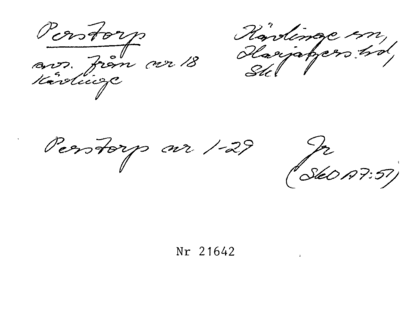 Perstorp
avs. från nr 18
Kävlinge
Kävlinge sn,
Harjagers hd,
Sk
Perstorp nr 1-29
Jr
(SkO A7:51)
Nr 21642